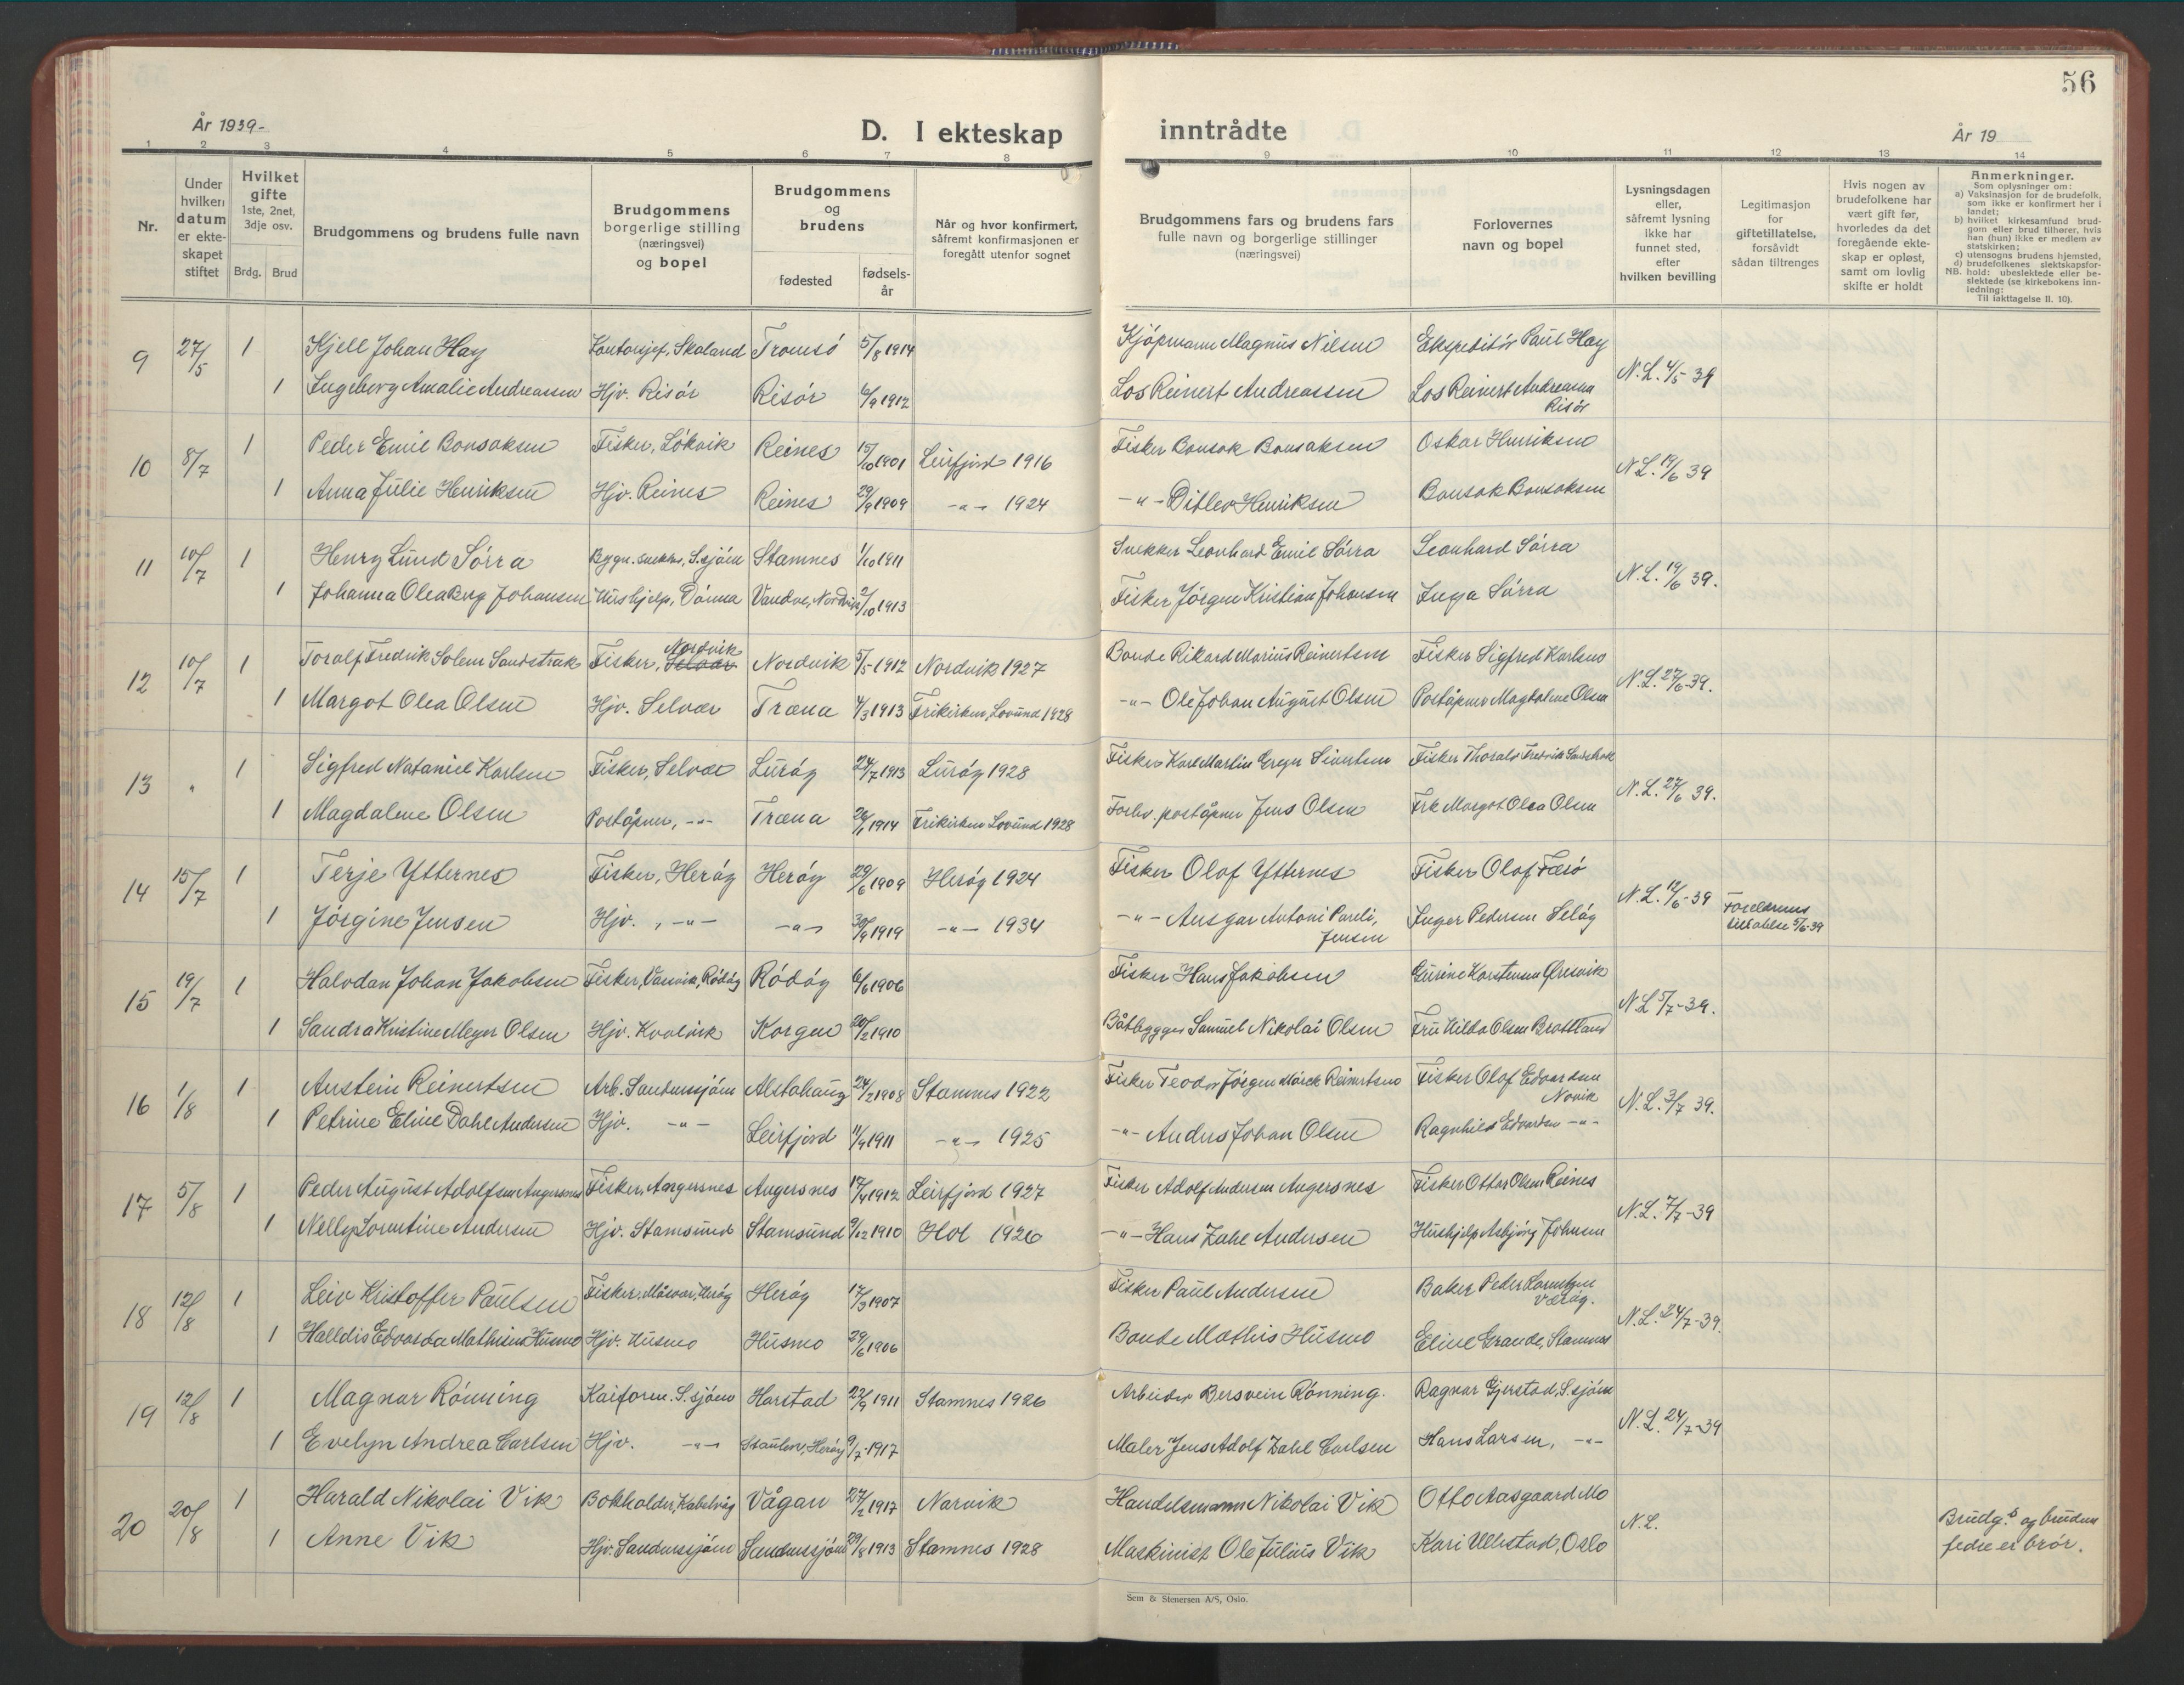 56
År 1939-
D. I ekteskap inntrådte
År 19
1 2 3 4 5 6 7 8 9 10 11 12 13 14
Nr.
Under hvilken datum er ekteskapet stiftet
Hvilket gifte
1ste, 2net, 3dje osv.
Brdg. Brud
Brudgommens og brudens fulle navn
Brudgommens borgerlige stilling (næringsvei) og bopel
Brudgommens og brudens
fødested
fødselsår
Når og hvor konfirmert, såfremt konfirmasjonen er foregått utenfor sognet
Brudgommens fars og brudens fars fulle navn og borgerlige stillinger (næringsvei)
Forlovernes navn og bopel
Lysningsdagen eller, såfremt lysning ikke har funnet sted, efter hvilken bevilling
Legitimasjon for giftetillatelse, forsåvidt sådan tiltrenges
Hvis nogen av brudefolkene har vært gift før, hvorledes da det foregående ekteskap er opløst, samt om lovlig skifte er holdt
Anmerkninger.
Som oplysninger om:
a) Vaksinasjon for de brudefolk, som ikke er konfirmert her i landet;
b) hvilket kirkesamfund brudgom eller brud tilhører, hvis han (hun) ikke er medlem av statskirken;
c) utensogns brudens hjemsted,
d) brudefolkenes slektskapsforhold: ubeslektede eller beslektede (se kirkebokens innledning:
NB.
Til iakttagelse II. 10).
9 27/5 1 Kjell Johan Hay Kontorsjef, Skaland Tromsö 5/8 1914 Kjöpmann Magnus Nilsen Ekspeditör Paul Hay N.L. 4/5-39
1 Ingeborg Amalie Andreassen Hjv. Risör Risör 6/9 1912 Los Reinert Andreassen Los Reinert Andreassen Risör
10 8/7 1 Peder Emil Bonsaksen Fisker, Lökvik Reines 15/10 1901 Leirfjord 1916 Fisker Bonsak Bonsaksen Oskar Henriksen N.L. 19/6 39
1 Anna Julie Henriksen Hjv. Reines Reines 29/9 1909 -"- 1924 -"- Ditlev Henriksen Bonsak Bonsaksen
11 10/7 1 Henry Lund Sörra Bygn. snekker, S.sjöen Stamnes 1/10 1911 Snekker Leonhard Emil Sörra Leonhard Sörra N.L. 19/6 39.
1 Johanna Olea Berg Johansen Hushjelp, Dönna Vandve, Nordvik 2/10 1913 Fisker Jörgen Kristian Johansen Inga Sörra
12 10/7 1 Toralf Fredrik Solem Sandstrak Fisker, Selvær Nordvik Nordvik 5/5-1912 Nordvik 1927 Bonde Rikard Marius Reinertsen Fisker Sigfred Karlsen N.L. 27/6-39.
1 Margot Olea Olsen Hjv. Selvær Træna 4/3 1913 Frikirken, Lovund 1928 -"- Ole Johan August Olsen Poståpner Magdalene Olsen
13 " 1 Sigfred Nataniel Karlsen Fisker, Selvær Luröy 24/7 1913 Luröy 1928 Fisker Karl Martin Greger Sivertsen Fisker Thoralf Fredrik Sandstrak N.L. 27/6 39.
1 Magdalene Olsen Poståpner, -"- Træna 26/1 1914 Frikirken Lovund 1928 Forhv. poståpner Jens Olsen Frk Margot Olea Olsen
14 15/7 1 Terje Ytternes Fisker, Heröy Heröy 29/6 1909 Heröy 1924 Fisker Olof Ytternes Fisker Olof Færö N.L. 12/6-39 Foreldrenes tillatelse 5/6-39
1 Jörgine Jensen Hjv., -"- -"- 30/9 1919 -"- 1934 -"- Ansgar Antoni Pareli, Jensen Inger Pedersen Selöy
15 19/7 1 Halvdan Johan Jakobsen Fisker, Værvik, Rödöy Rödöy 6/6 1906 Fisker Hans Jakobsen Gurine Karstensen Øresvik N.L. 5/7-39.
1 Sandra Kristine Meyer Olsen Hjv. Kvalvik Korgen 20/2 1910 Båtbygger Samuel Nikolai Olsen Fru Hilda Olsen Brattland
16 1/8 1 Austein Reinertsen Arb. Sandnessjöen Alstahaug 24/2 1908 Stamnes 1922 Fisker Teodor Jörgen Mörck Reinertsen Fisker Olof Edvardsen Novik N.L. 3/7 39.
1 Petrine Eline Dahl Andersen Hjv. -"- Leirfjord 11/9 1911 -"- 1925 -"- Anders Johan Olsen Ragnhild Edvardsen -"-
17 5/8 1 Peder August Adolfsen Angersnes Fisker, Angersnes Angersnes 17/4 1912 Leirfjord 1927 Fisker Adolf Andersen Angersnes Fisker Ottar Olsen Reines N.L. 7/7-39
1 Nelly Sorentine Andersen Hjv. Stamsund Stamsund 9/12 1910 Hol 1926 -"- Hans Zahl Andersen Hushjelp Asbjörg Johnsen
18 12/8 1 Leiv Kristoffer Paulsen Fisker, Måsvær, Heröy Heröy 17/3 1907 Fisker Paul Andersen Baker Peder Lorentzen Væröy. N.L. 24/7-39.
1 Halldis Edvarda Mathisen Husmo Hjv. Husmo Husmo 29/6 1906 Bonde Mathis Husmo Eline Grande, Stamnes
19 12/8 1 Magnar Rönning Kaiform. S.sjöen Harstad 22/9 1911 Stamnes 1926 Arbeider Bersvein Rönning. Ragnar Gjerstad, S.sjöen N.L. 24/7-39
1 Evelyn Andrea Carlsen Hjv. -"- Staulen, Heröy 9/7-1917 Maler Jens Adolf Zahl Carlsen Hans Larsen, -"-
20 20/8 1 Harald Nikolai Vik Bokholder, Kabelvåg Vågan 27/2 1917 Narvik Handelsmann Nikolai Vik Otto Aasgaard Mo N.L. Brudg.s og brudens fedre er brör.
1 Anne Vik Hjv. Sandnessjöen Sandnessjöen 29/8 1913 Stamnes 1928 Maskinist Ole Julius Vik Kari Ullestad, Oslo
Sem & Stenersen A/S, Oslo.